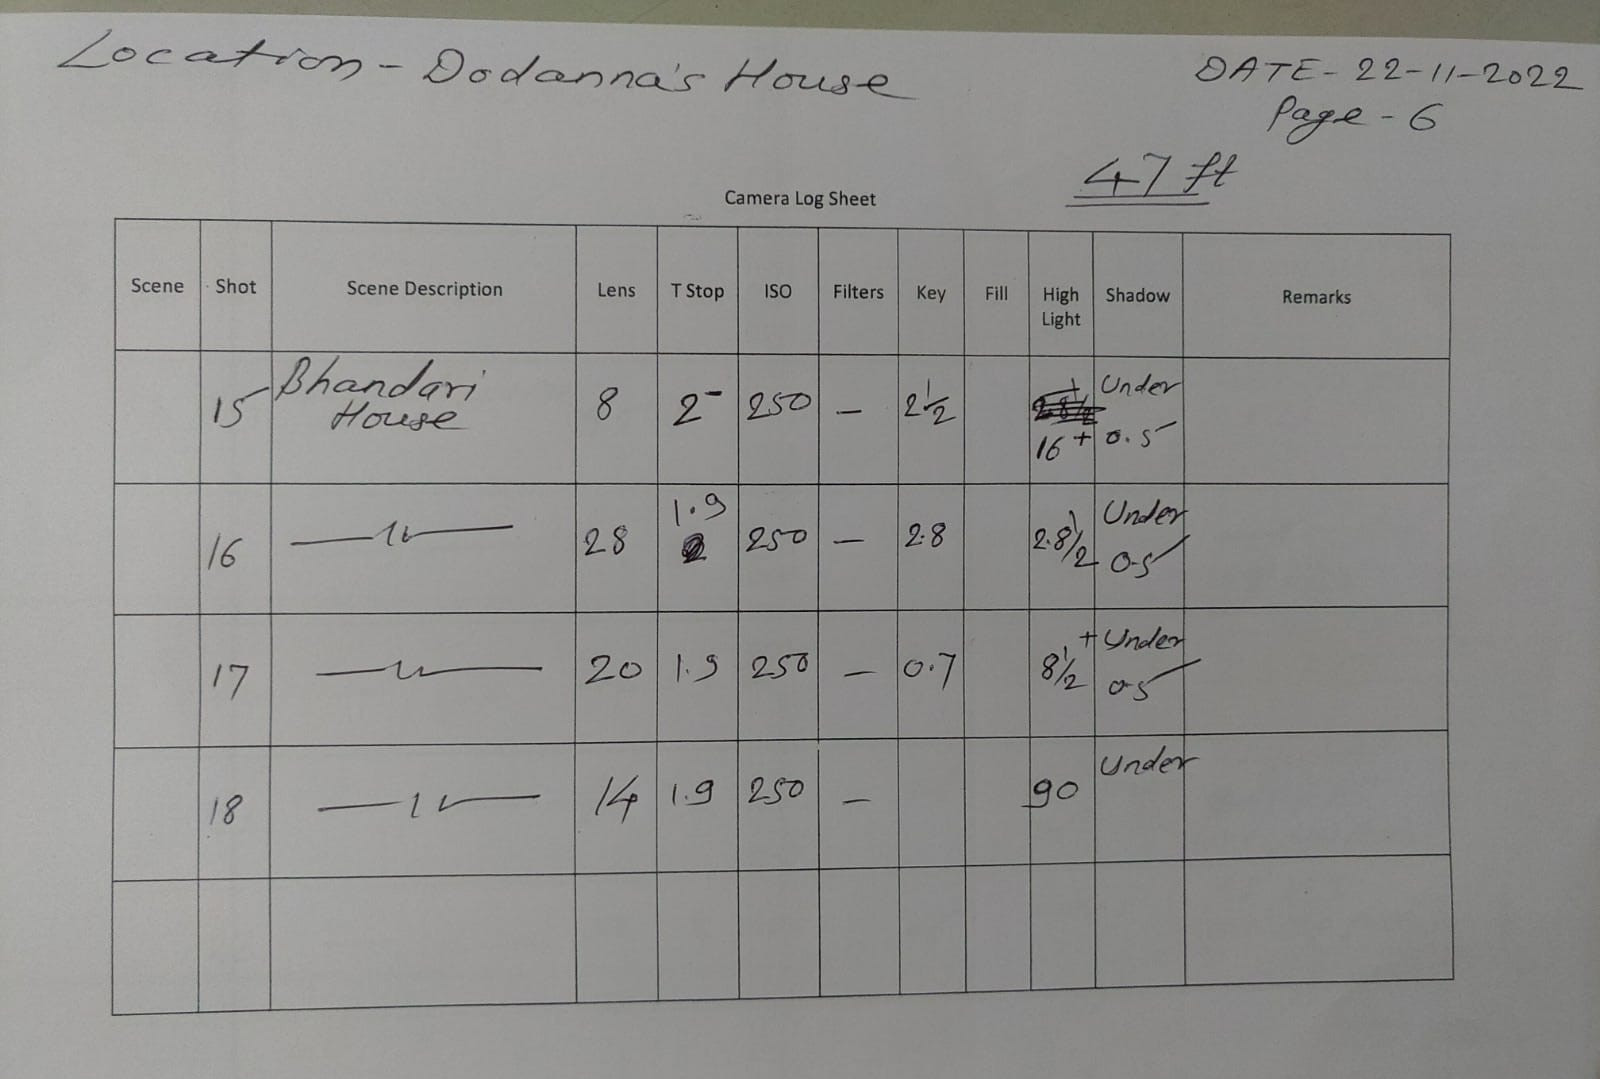 Location - Dodanna's House
DATE - 22-11-2022
Page - 6
47 ft
Camera Log Sheet
Scene Shot Scene Description Lens T Stop ISO Filters Key Fill High Light Shadow Remarks
15 Bhandari House 8 2- 250 — 2 1/2 16+ Under 0.5
16 —〃— 28 1.9 250 — 2.8 2.8 1/2 Under 0.5
17 —〃— 20 1.9 250 — 0.7 8 1/2 + Under 0.5
18 —〃— 14 1.9 250 — 90 Under